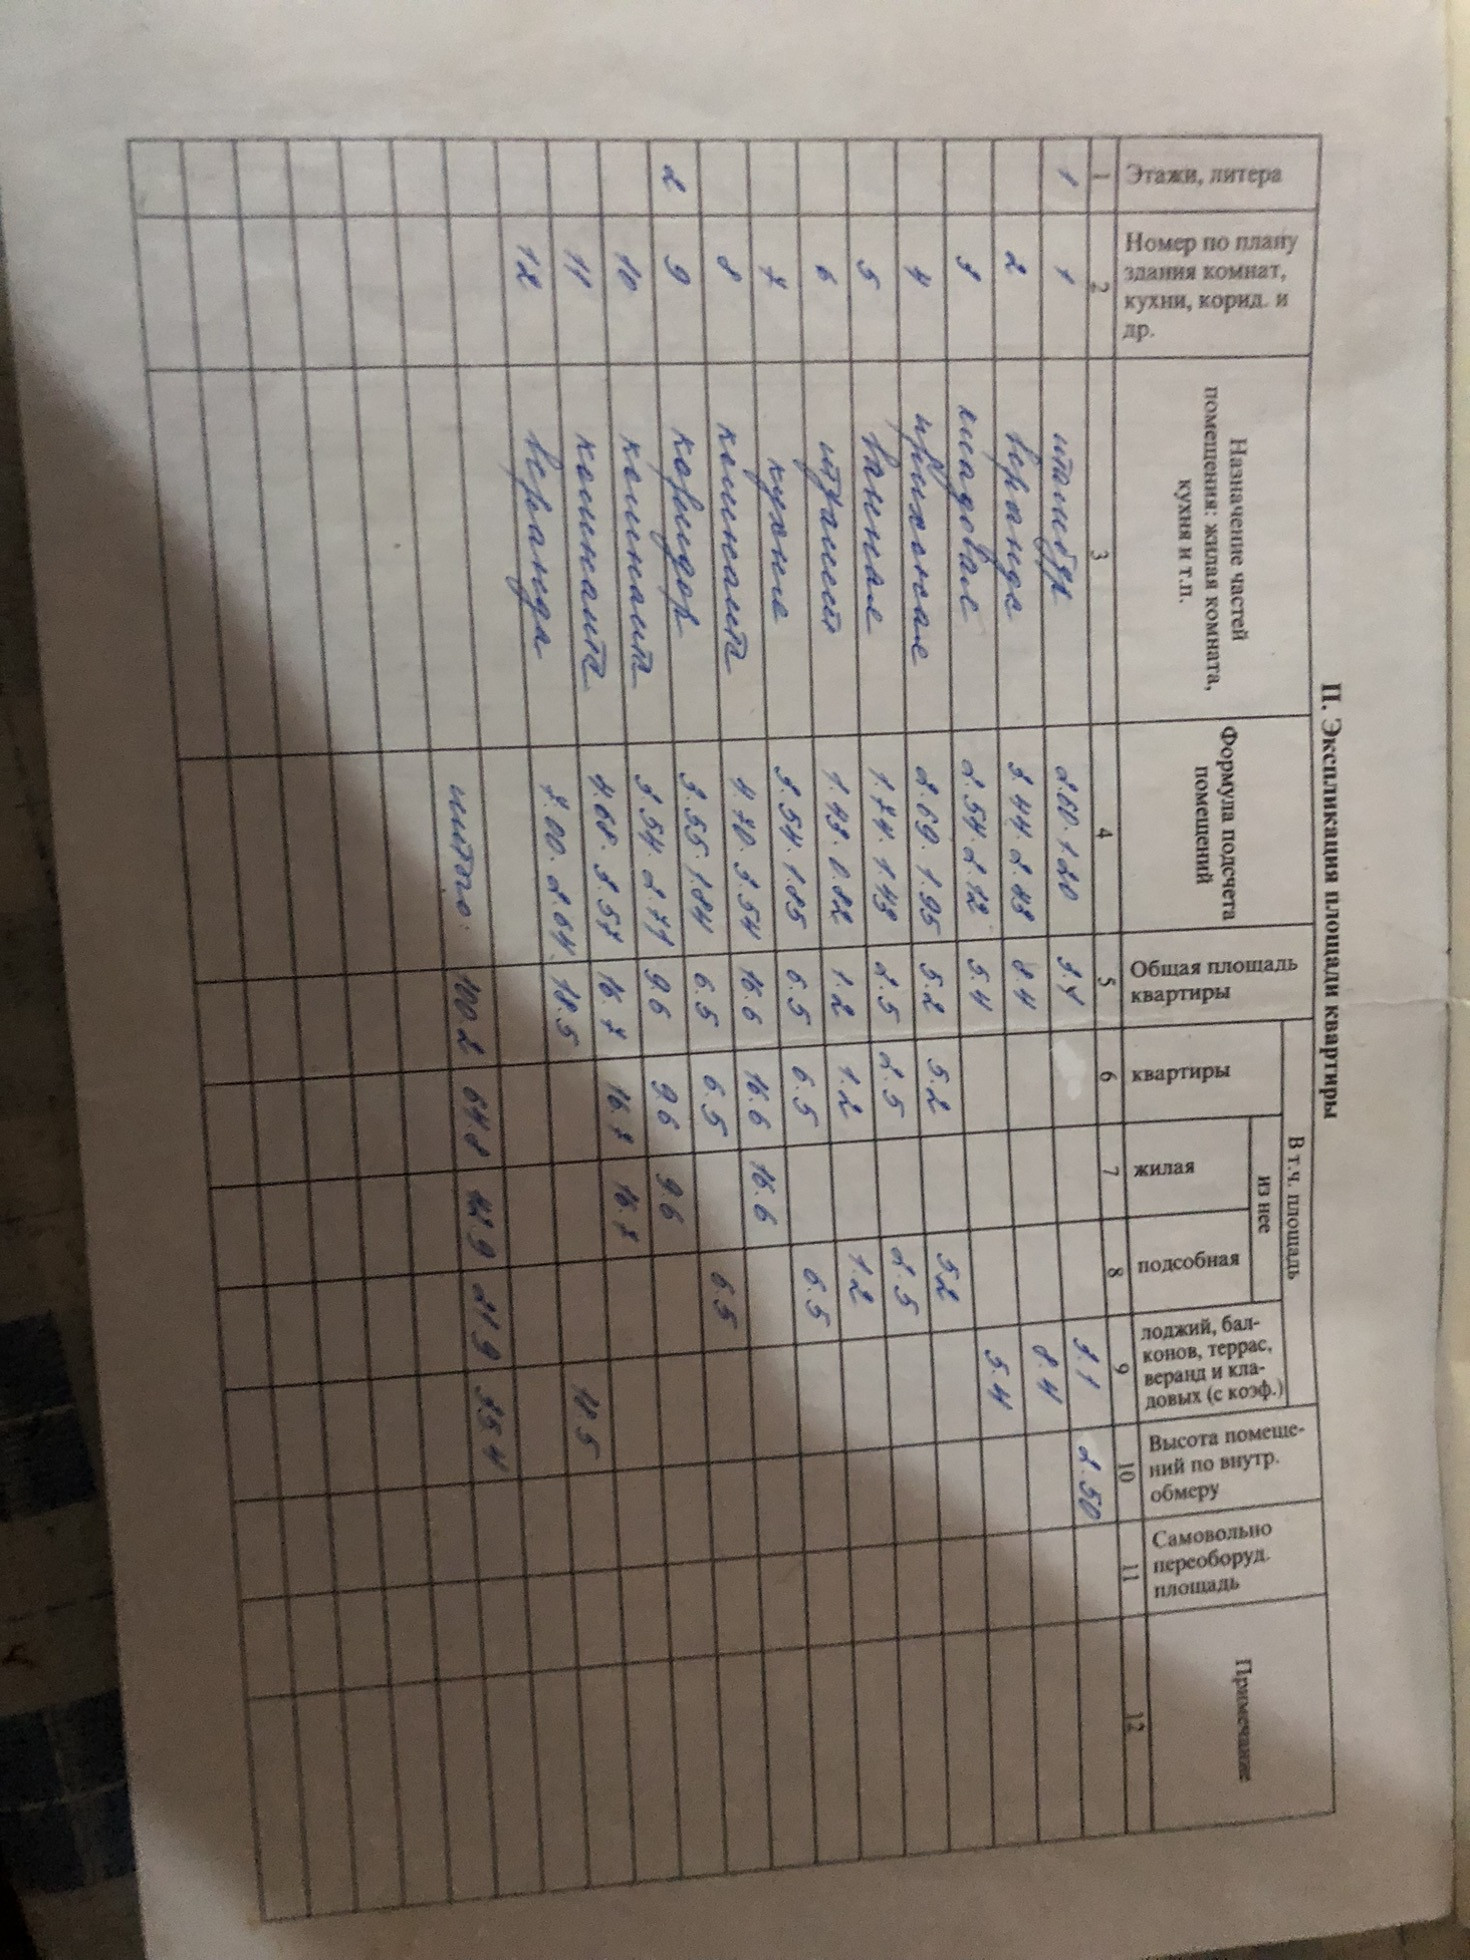 II. Экспликация площади квартиры
Этажи, литера
Номер по плану
здания комнат,
кухни, корид. и
др.
Назначение частей
помещения: жилая комната,
кухня и т.п.
Формула подсчета
помещений
Общая площадь
квартиры
В т.ч. площадь
квартиры
из нее
жилая
подсобная
лоджий, бал-
конов, террас,
веранд и кла-
довых (с коэф.)
Высота помеще-
ний по внутр.
обмеру
Самовольно
переоборуд.
площадь
Примечание
1 2 3 4 5 6 7 8 9 10 11 12
1 1 тамбур 2.60·1.20 3.1 3.1 2.50
2 веранда 3.44·2.43 8.4 8.4
3 кладовая 2.54·2.12 5.4 5.4
4 прихожая 2.69·1.95 5.2 5.2 5.2
5 ванная 1.74·1.43 2.5 2.5 2.5
6 туалет 1.43·0.82 1.2 1.2 1.2
7 кухня 3.54·1.85 6.5 6.5 6.5
8 комната 4.70·3.54 16.6 16.6 16.6
2 9 коридор 3.55·1.84 6.5 6.5 6.5
10 комната 3.54·2.71 9.6 9.6 9.6
11 комната 4.68·3.57 16.7 16.7 16.7
12 веранда 7.00·2.64 18.5 18.5
итого: 100.2 64.8 42.9 21.9 35.4